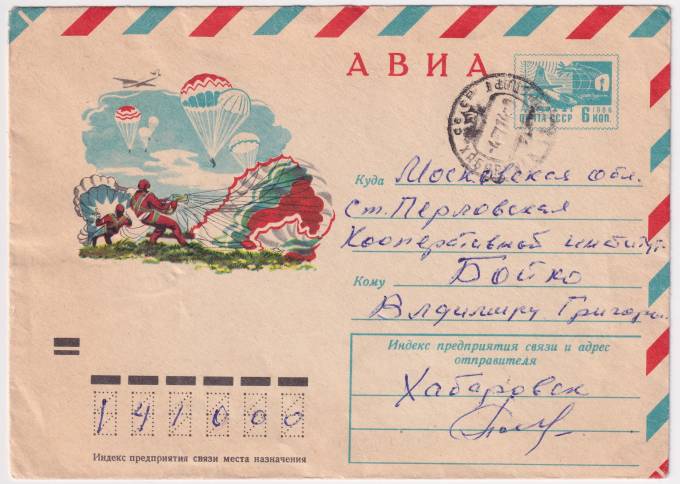 АВИА
1966
ПОЧТА СССР 6 КОП.
Куда Московская обл.
ст. Перловская
Кооперативный институт
Кому Бойко
Владимиру Григор.
Индекс предприятия связи и адрес
отправителя
Хабаровск
141000
Индекс предприятия связи места назначения